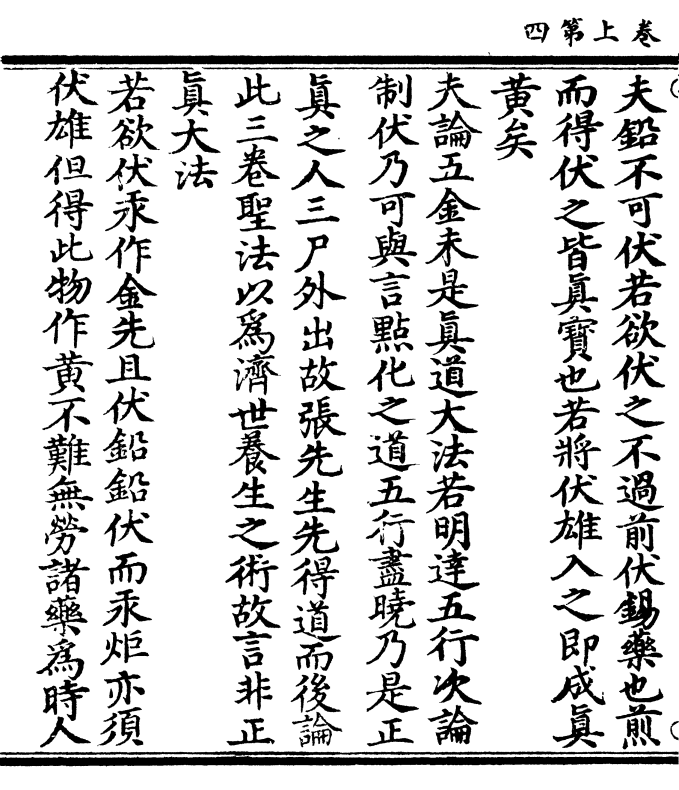 卷上第四
夫鉛不可伏若欲伏之不過前伏錫藥也煎
而得伏之皆眞寶也若將伏雄入之即成眞
黄矣
夫論五金未是眞道大法若明達五行次論
制伏乃可與言㸃化之道五行盡曉乃是正
眞之人三尸外出故張先生先得道而後論
此三卷聖法以爲濟世養生之術故言非正
眞大法
若欲伏汞作金先且伏鉛鉛伏而汞炬亦須
伏雄但得此物作黄不難無勞諸藥爲時人